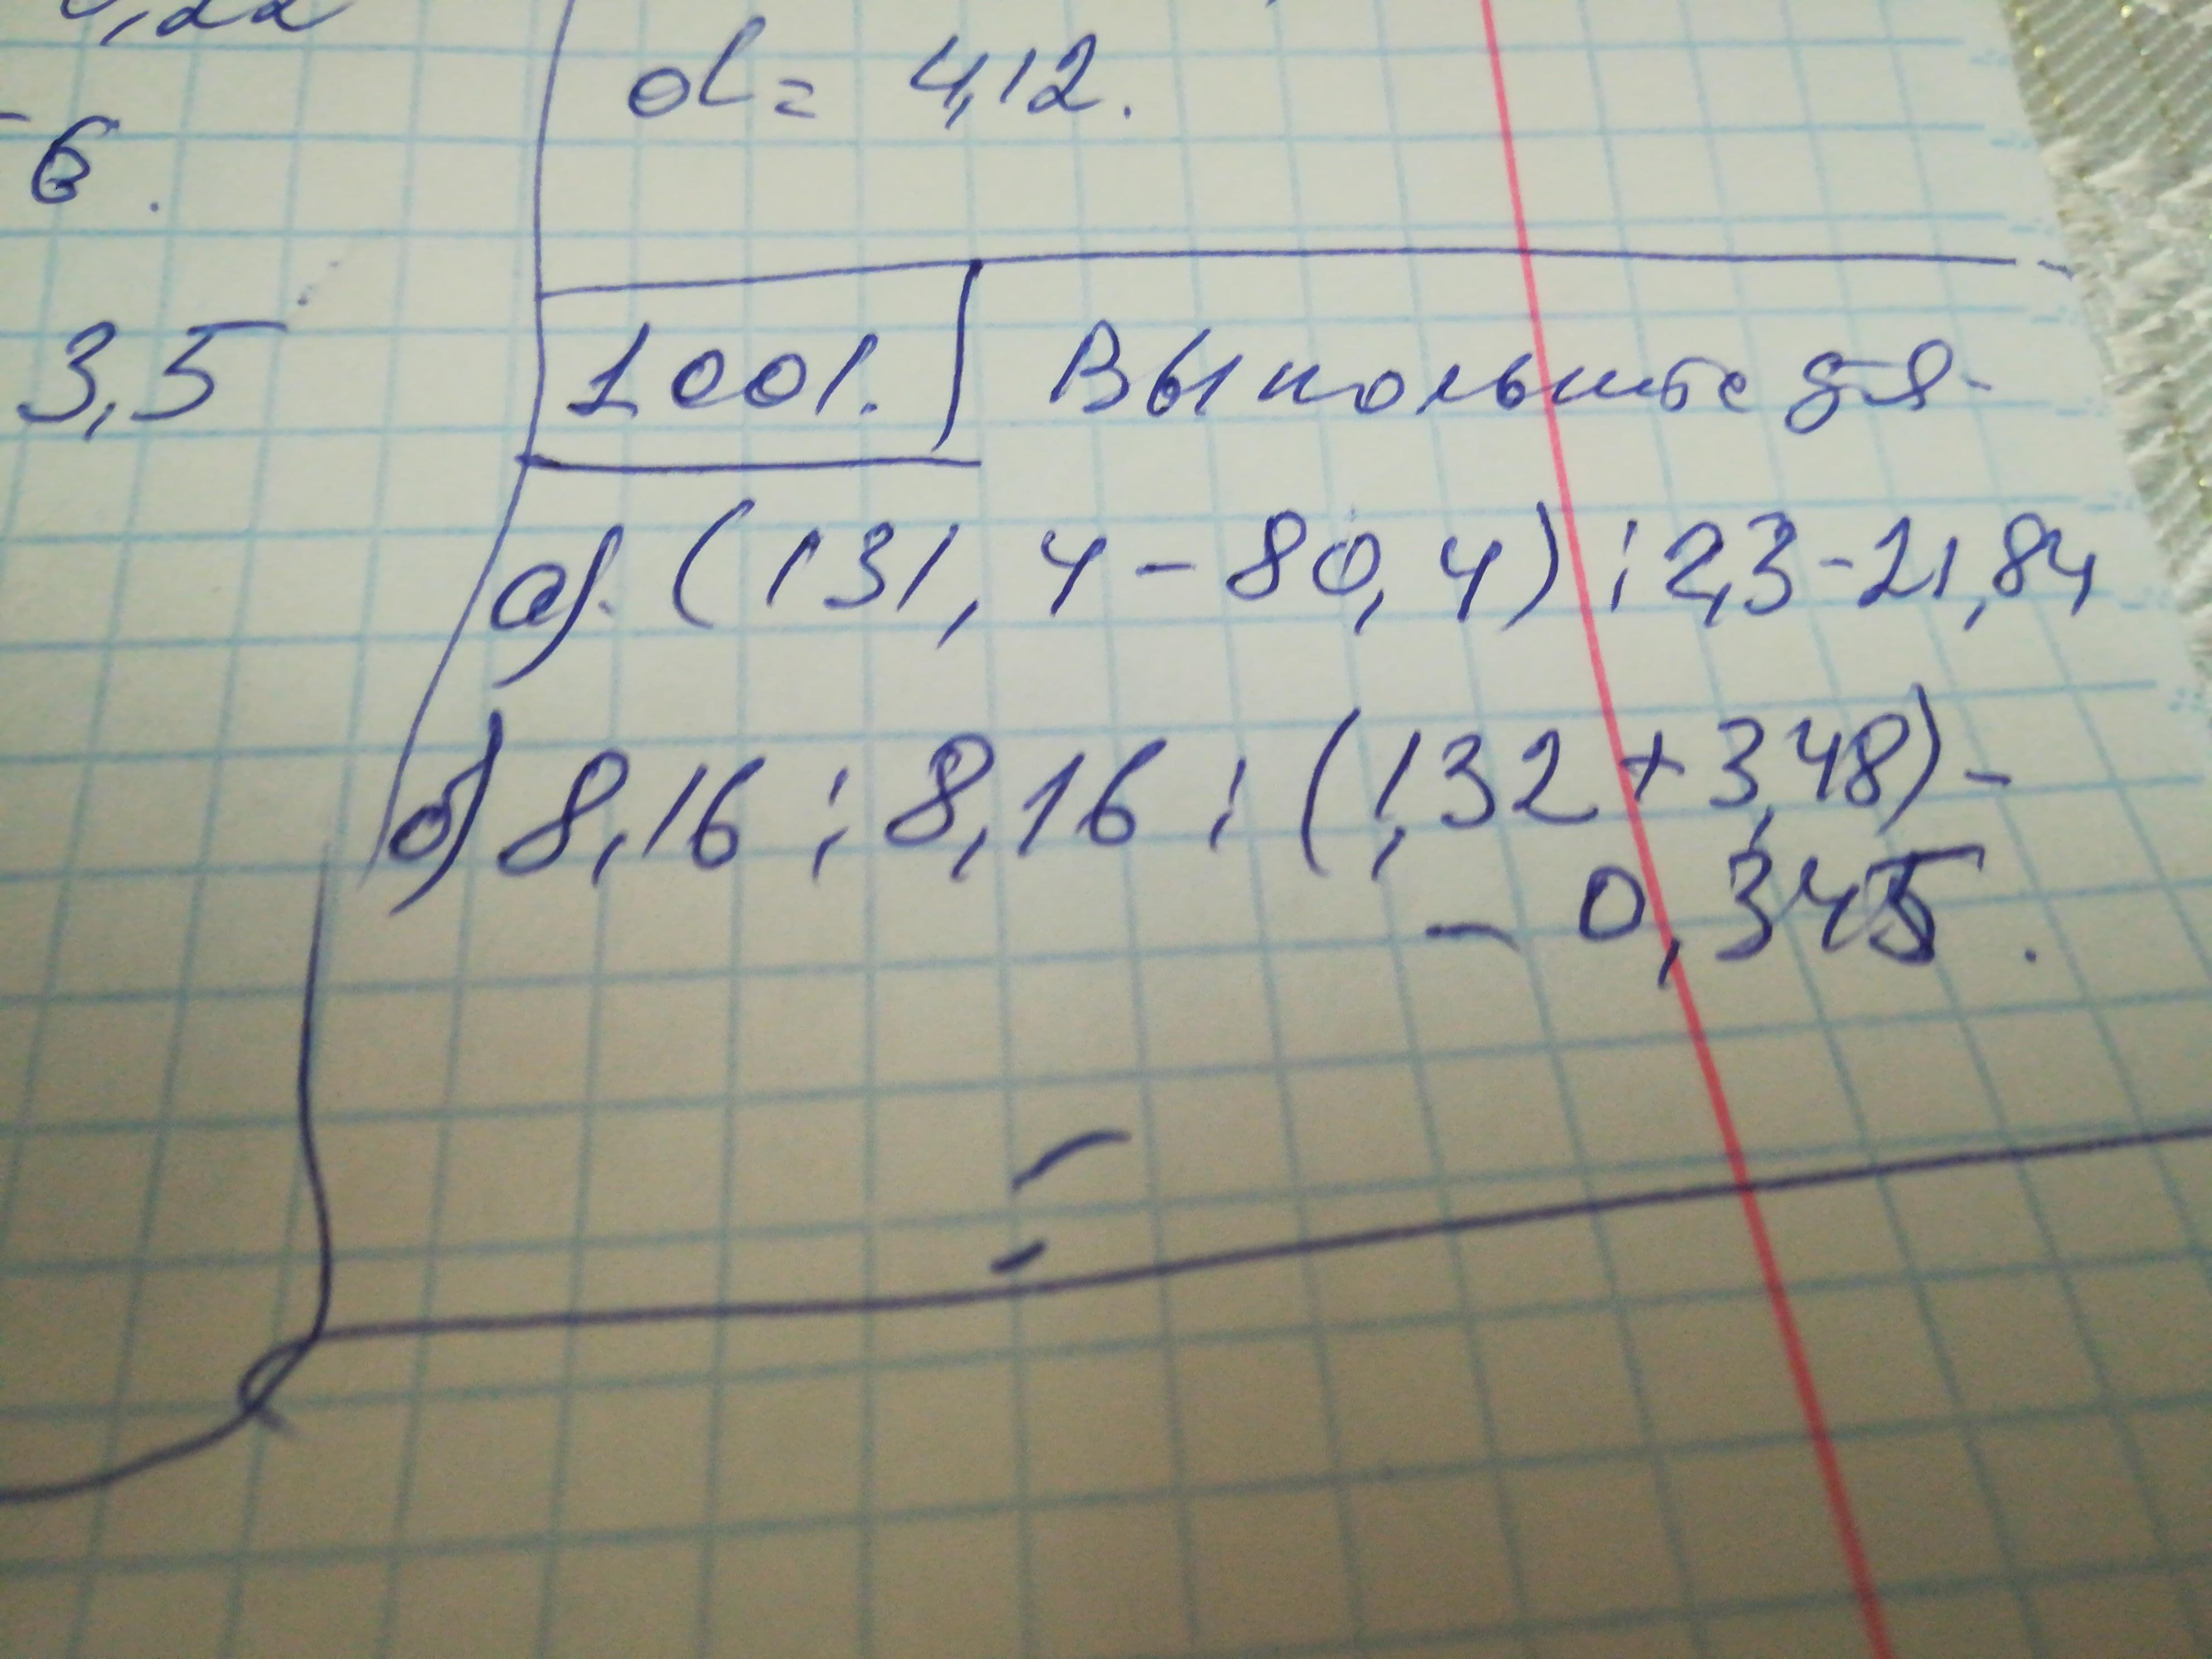 6.
3,5
d = 4,12.
1001. Выполните д-я-
а). (131,4 - 80,4) : 2,3 - 21,84
б) 8,16 : 8,16 : (1,32 + 3,48) -
- 0,345.